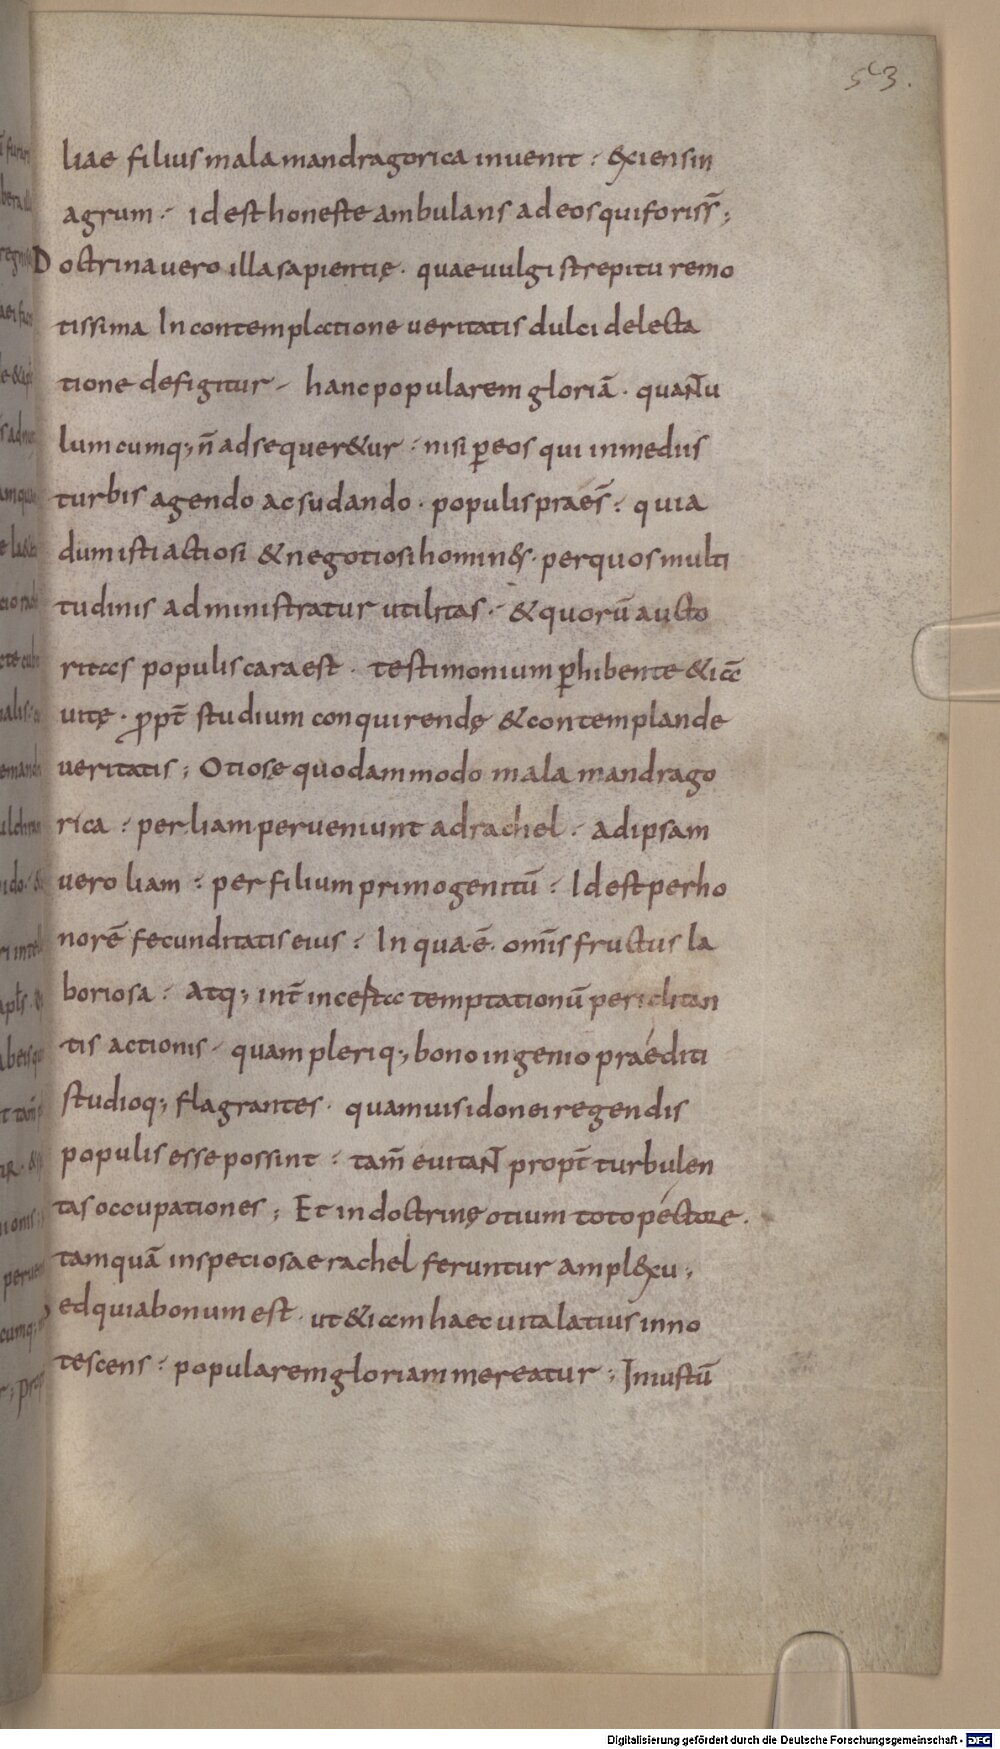 53.
liae filius mala mandragorica inuenit : &xiens in
agrum · id est honeste ambulans ad eos qui foris s̄ ;
Doctrina uero illa sapientię · quae uulgi strepitu remo
tissima In contemplatione ueritatis dulci delecta
tione defigitur · hanc popularem gloriā · quaNtu
lumcumq; n̄ adsequer&ur · nisi ꝑ eos qui in mediis
turbis agendo ac sudando · populis praeś : quia
dum isti actiosi & negotiosi homin&s · per quos multi
tudinis administratur utilitas · & quorū aucto
ritas populis cara est · testimonium ꝑhibent e&iā
uitę · ꝓpt̄ studium conquirendę & contemplande
ueritatis ; Otiose quodammodo mala mandrago
rica : per liam perueniunt ad rachel : ad ipsam
uero liam : per filium primogenitū : Id est per ho
norē fecunditatis eius : In qua · ē · omīs fructus la
boriosa : Atq; int̄ incesta temptationū periclitan
tis actionis · quam pleriq; bono ingenio praediti
studioq; flagrantes · quamuis idonei regendis
populis esse possint : tam̄ euitaNt propt̄ turbulen
tas occupationes ; Et in doctrinę otium toto pectore ·
tamquā in speciosae rachel feruntur ampl&xu ;
ed quia bonum est · ut &iam haec uita latius inno
tescens : popularem gloriam mereatur ; Iniustū
Digitalisierung gefördert durch die Deutsche Forschungsgemeinschaft - DFG